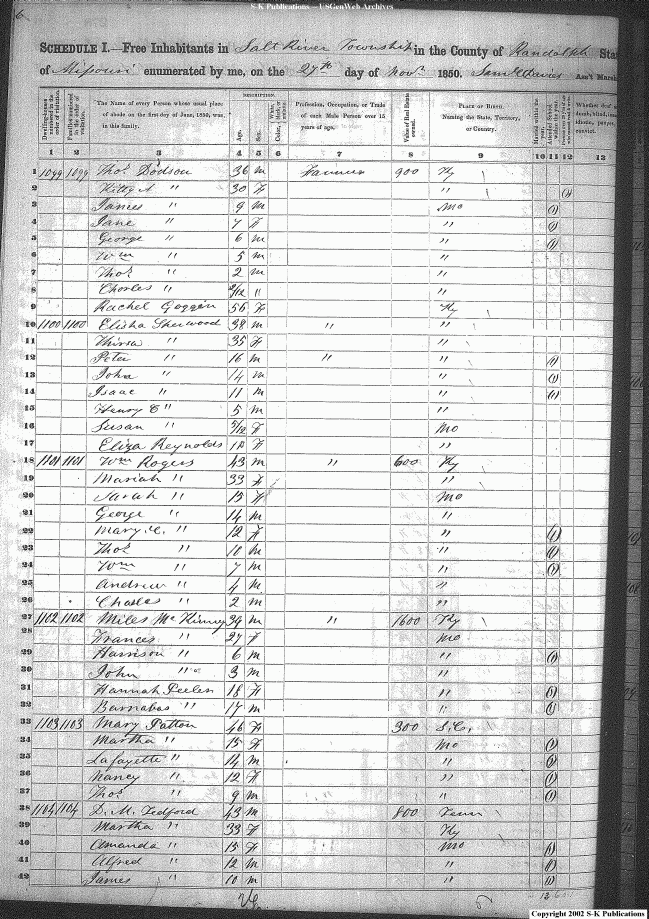 S-K Publications -- USGenWeb Archives
6
SCHEDULE I.—Free Inhabitants in Salt River Township in the County of Randolph Sta
of Missouri enumerated by me, on the 27th day of Novr. 1850. Ass't Marsh
DESCRIPTION.
Dwelling-houses numbered in the order of visitation. Families numbered in the order of visitation. The Name of every Person whose usual place of abode on the first day of June, 1850, was in this family. Age. Sex. Color Profession, Occupation, or Trade of each Male Person over 15 years of age. Value of Real Estate owned. PLACE OF BIRTH. Naming the State, Territory, or Country. Married within the year. Attended School within the year. Whether deaf a dumb, blind, ins idiotic, pauper, convict.
1 2 3 4 5 6 7 8 9 10 11 12 13
1 1099 1099 Thos. Dodson 36 m Farmer 900 Ky
2 Kitty A " 30 F " (1)
3 James " 9 m Mo (1)
4 Jane " 7 F " (1)
5 George " 6 m " (1)
6 Wm " 5 m "
7 Thos. " 2 m "
8 Charles " /12 " "
9 Rachel Goggin 56 F Ky
10 1100 1100 Elisha Sherwood 38 m " "
11 " 35 F "
12 Peter " 16 m " " (1)
13 John " 14 m " (1)
14 Isaac " 11 m " (1)
15 Henry C " 5 m "
16 Susan " /12 F Mo
17 Eliza Reynolds 18 F "
18 1101 1101 Wm Rogers 43 m " 600 Ky
19 Mariah " 33 F "
20 Sarah " 15 F Mo
21 George " 14 m "
22 Mary " 12 F " (1)
23 Thos. " 10 m " (1)
24 Wm " 7 m " (1)
25 Andrew " 4 m "
26 Charles " 2 m "
27 1102 1102 Miles McKinney 39 m " 1600 Ky
28 Frances " 27 F Mo
29 Harrison " 6 m " (1)
30 John " 3 m "
31 Hannah Peeler 18 F " (1)
32 Barnabas " 17 m " (1)
33 1103 1103 Mary Patton 46 F 300 S.C.
34 Martha " 15 F Mo (1)
35 Lafayette " 14 m " (1)
36 Nancy " 12 F " (1)
37 Thos. " 9 m " (1)
38 1104 1104 D. M. Tedford 43 m 800 Tenn
39 Martha " 33 F Ky
40 Amanda " 15 F Mo (1)
41 Alfred " 12 m " (1)
42 James " 10 m " (1)
Copyright 2002 S-K Publications